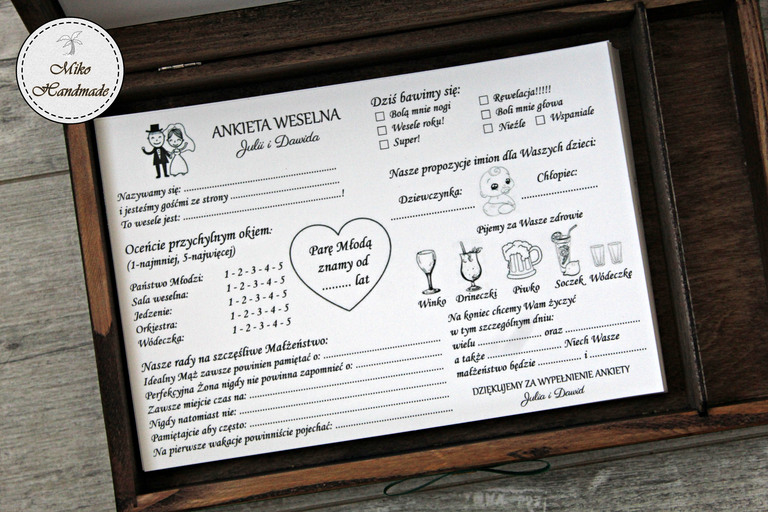 Miko
Handmade
ANKIETA WESELNA
Julii i Dawida
Nazywamy się: ..............................
i jesteśmy gośćmi ze strony ..............................
To wesele jest: ..............................!
Oceńcie przychylnym okiem:
(1-najmniej, 5-najwięcej)
Państwo Młodzi: 1 - 2 - 3 - 4 - 5
Sala weselna: 1 - 2 - 3 - 4 - 5
Jedzenie: 1 - 2 - 3 - 4 - 5
Orkiestra: 1 - 2 - 3 - 4 - 5
Wódeczka: 1 - 2 - 3 - 4 - 5
Parę Młodą
znamy od
......... lat
Nasze rady na szczęśliwe Małżeństwo:
Idealny Mąż zawsze powinien pamiętać o: ..............................
Perfekcyjna Żona nigdy nie powinna zapomnieć o: ..............................
Zawsze miejcie czas na: ..............................
Nigdy natomiast nie: ..............................
Pamiętajcie aby często: ..............................
Na pierwsze wakacje powinniście pojechać: ..............................
Dziś bawimy się:
Bolą mnie nogi
Wesele roku!
Super!
Rewelacja!!!!!
Boli mnie głowa
Nieźle Wspaniale
Nasze propozycje imion dla Waszych dzieci:
Dziewczynka: Chłopiec:
Pijemy za Wasze zdrowie
Winko Drineczki Piwko Soczek Wódeczkę
Na koniec chcemy Wam życzyć
w tym szczególnym dniu:
wielu .................... oraz ....................
a także .................... Niech Wasze
małżeństwo będzie ............ i ............
DZIĘKUJEMY ZA WYPEŁNIENIE ANKIETY
Julia i Dawid